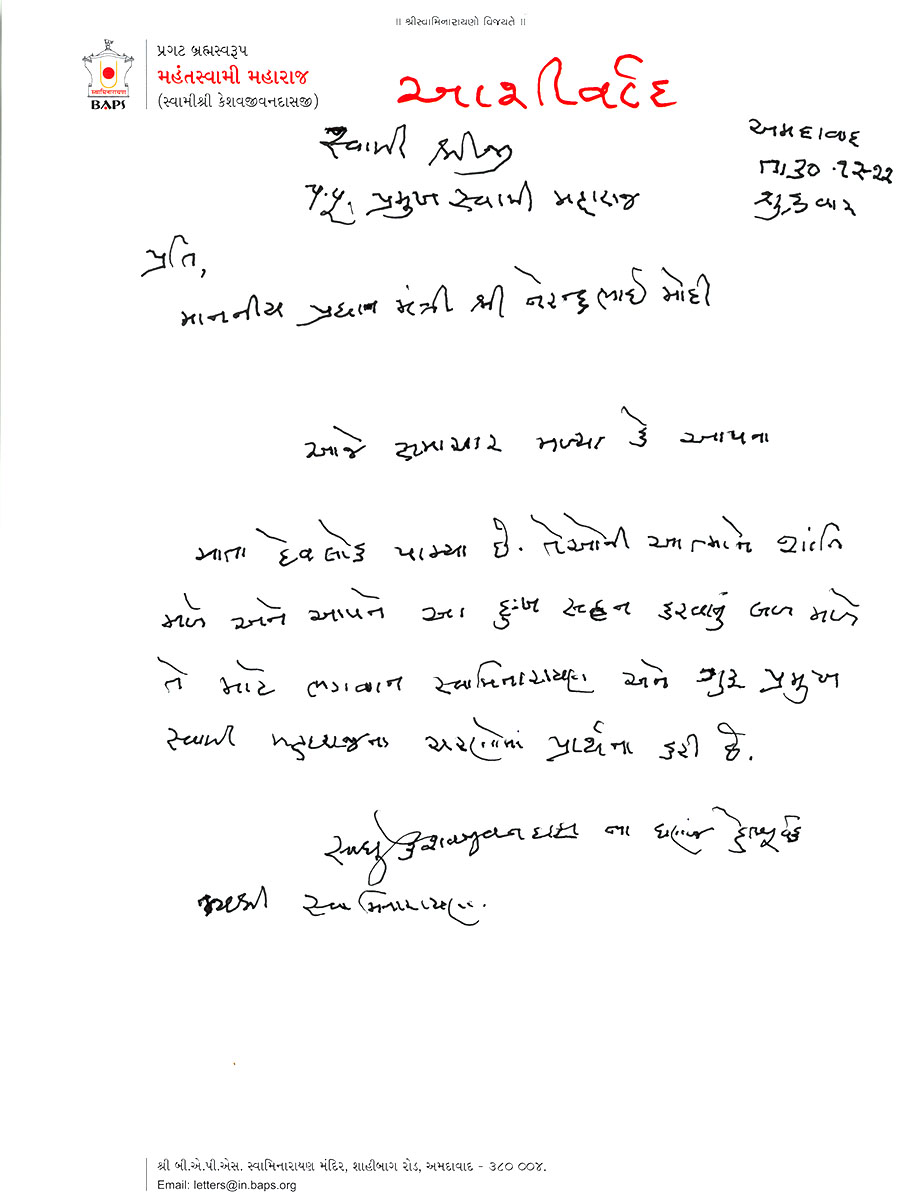 ॥ શ્રીસ્વામિનારાયણો વિજયતે ॥
પ્રગટ બ્રહ્મસ્વરૂપ
મહંતસ્વામી મહારાજ
(સ્વામીશ્રી કેશવજીવનદાસજી)
સ્વામિનારાયણ
BAPS
આશીર્વાદ
સ્વામી શ્રીજી
અમદાવાદ
પ.પૂ. પ્રમુખ સ્વામી મહારાજ
તા ૩૦.૧૨-૨૨
શુક્રવાર
પ્રતિ,
માનનીય પ્રધાન મંત્રી શ્રી નરેન્દ્રભાઈ મોદી
આજે સમાચાર મળ્યા કે આપના
માતા દેવલોક પામ્યા છે. તેઓની આત્માને શાંતિ
મળે અને આપને આ દુઃખ સહન કરવાનું બળ મળે
તે માટે ભગવાન સ્વામિનારાયણ અને ગુરુ પ્રમુખ
સ્વામી મહારાજના ચરણોમાં પ્રાર્થના કરી છે.
સાધુ કેશવજીવનદાસ ના ઘણાંજ હેતપૂર્વક
જયશ્રી સ્વામિનારાયણ.
શ્રી બી.એ.પી.એસ. સ્વામિનારાયણ મંદિર, શાહીબાગ રોડ, અમદાવાદ - ૩૮૦ ૦૦૪.
Email: letters@in.baps.org